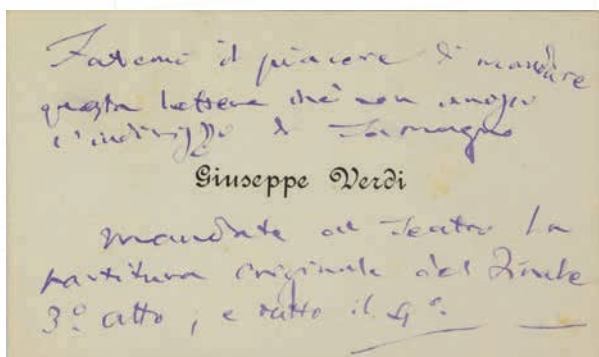 Fatemi il piacere di mandare
questa lettera chè non conosco
l'indirizzo di Tamagno
Giuseppe Verdi
Mandate al Teatro la
partitura originale del Finale
3º atto, e tutto il 4º.